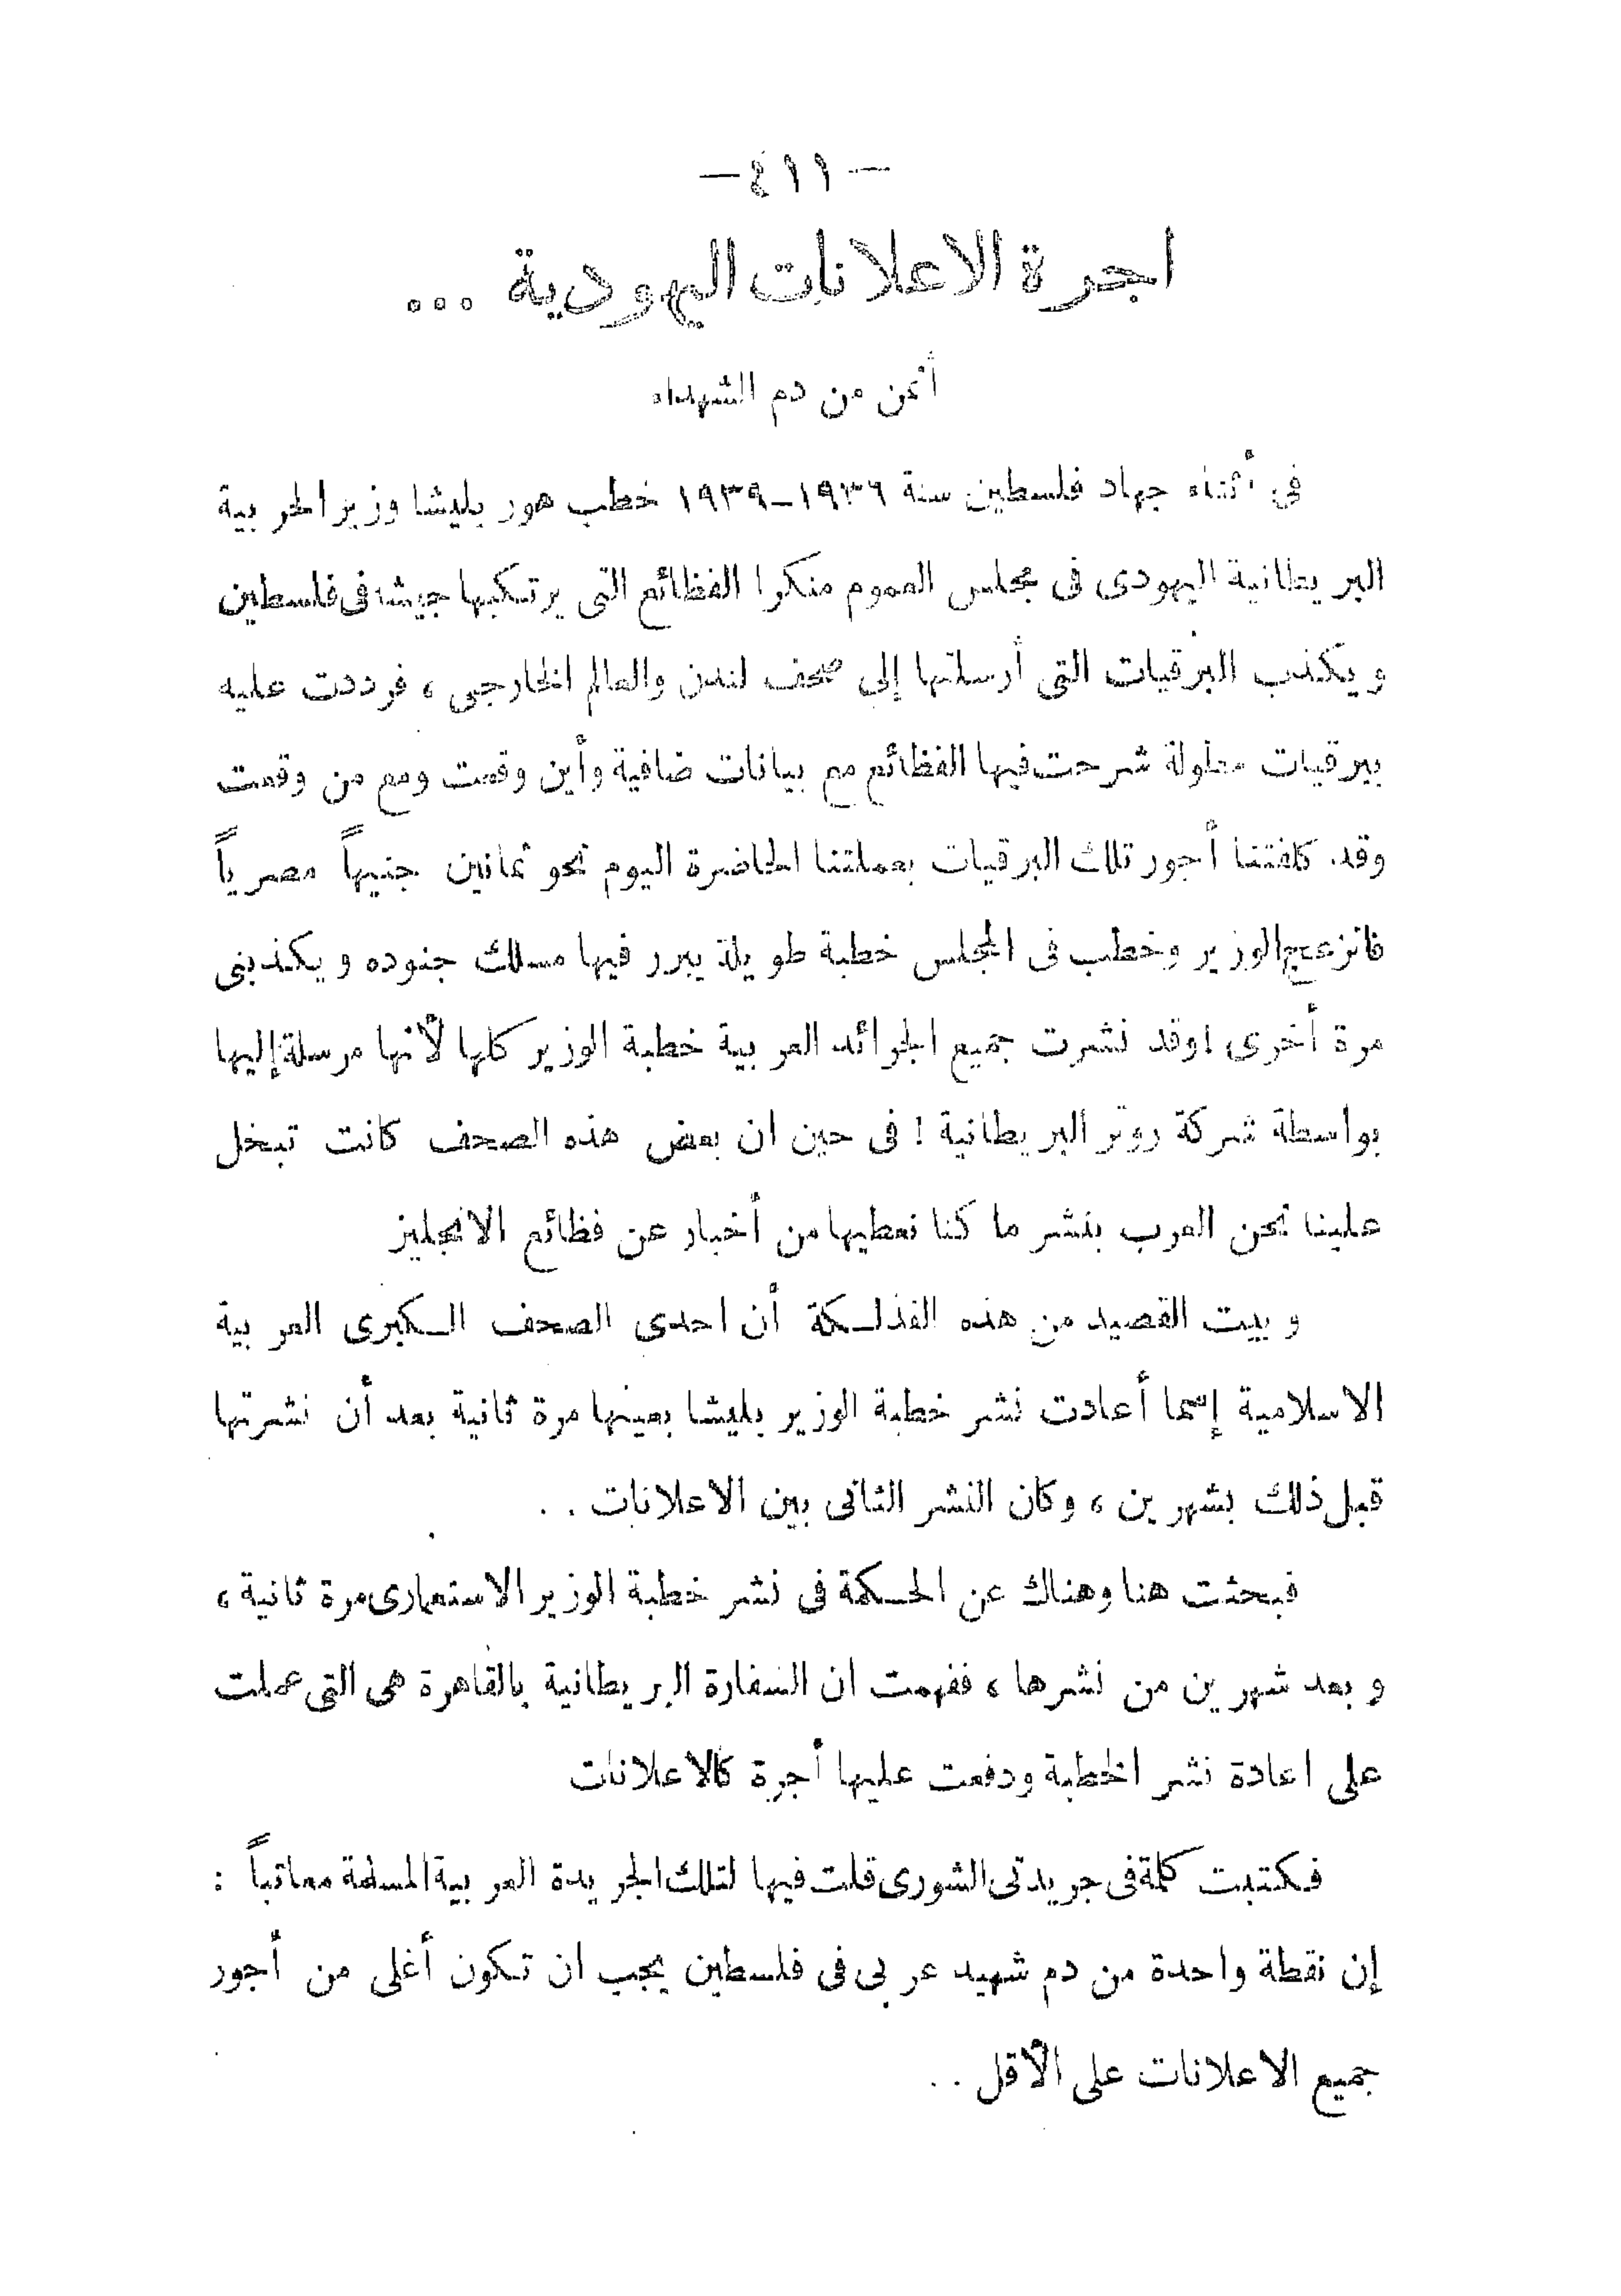 — ٤١١ —
اجرة الاعلانات اليهودية ...
أثمن من دم الشهداء
فى أثناء جهاد فلسطين سنة ١٩٣٦ــ١٩٣٩ خطب هور بليشا وزير الحربية
البريطانية اليهودى فى مجلس العموم منكرا الفظائع التى يرتكبها جيشه فى فلسطين
ويكذب البرقيات التى أرسلتها إلى صحف لندن والعالم الخارجى ، فرددت عليه
ببرقيات مطولة شرحت فيها الفظائع مع بيانات ضافية وأين وقعت ومع من وقعت
وقد كلفتنا أجور تلك البرقيات بعملتنا الحاضرة اليوم نحو ثمانين جنيهاً مصرياً
فانزعج الوزير وخطب فى المجلس خطبة طويلة يبرر فيها مسلك جنوده ويكذبنى
مرة أخرى ! وقد نشرت جميع الجرائد العربية خطبة الوزير كلها لأنها مرسلة إليها
بواسطة شركة روتر البريطانية ! فى حين ان بعض هذه الصحف كانت تبخل
علينا نحن العرب بنشر ما كنا نعطيها من أخبار عن فظائع الانجليز
وبيت القصيد من هذه الفذلكة أن احدى الصحف الكبرى العربية
الاسلامية إسما أعادت نشر خطبة الوزير بليشا بعينها مرة ثانية بعد أن نشرتها
قبل ذلك بشهرين ، وكان النشر الثانى بين الاعلانات . .
فبحثت هنا وهناك عن الحكمة فى نشر خطبة الوزير الاستعمارى مرة ثانية ،
وبعد شهرين من نشرها ، ففهمت ان السفارة البريطانية بالقاهرة هى التى عملت
على اعادة نشر الخطبة ودفعت عليها أجرة كالاعلانات
فكتبت كلمة فى جريدتى الشورى قلت فيها لتلك الجريدة العربية المسلمة معاتباً :
إن نقطة واحدة من دم شهيد عربى فى فلسطين يجب ان تكون أغلى من أجور
جميع الاعلانات على الأقل . .